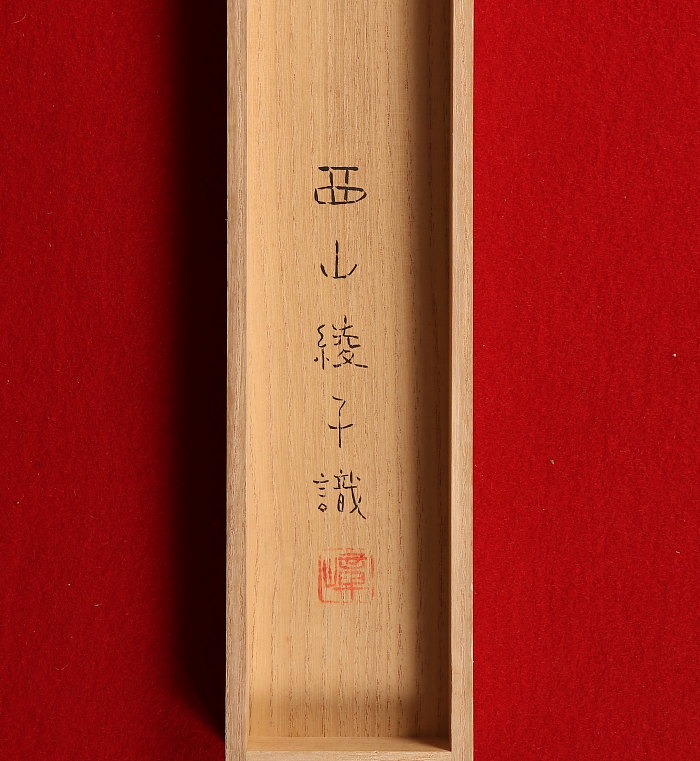 西山綾子識